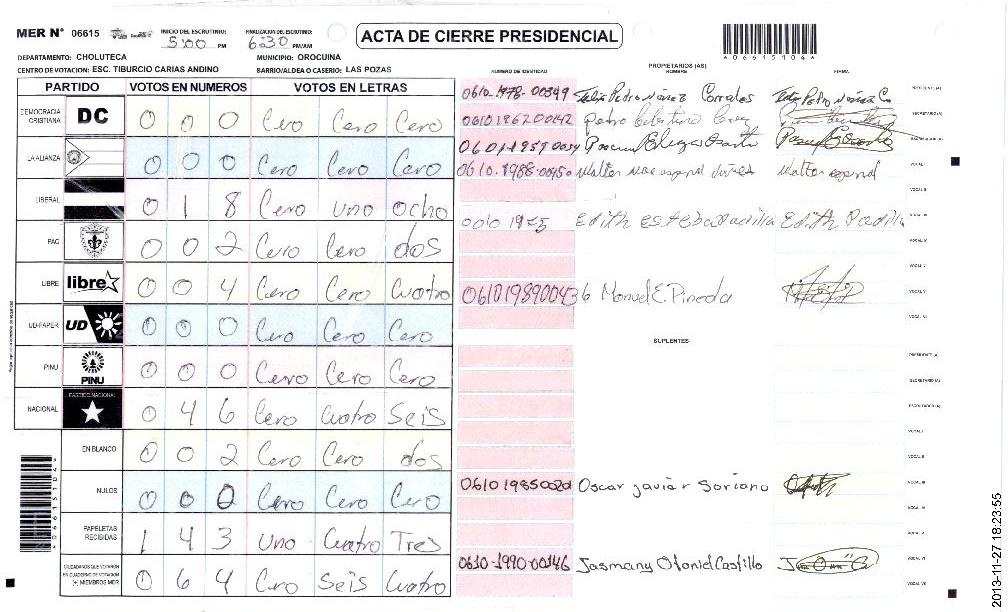 MER N° 06615
INICIO DEL ESCRUTINIO: 5:00 PM
FINALIZACION DEL ESCRUTINIO: 6:30 PM/AM
ACTA DE CIERRE PRESIDENCIAL
*06615104*
DEPARTAMENTO: CHOLUTECA
MUNICIPIO: OROCUINA
CENTRO DE VOTACION: ESC. TIBURCIO CARIAS ANDINO
BARRIO/ALDEA O CASERIO: LAS POZAS
PARTIDO VOTOS EN NUMEROS VOTOS EN LETRAS
NUMERO DE IDENTIDAD
PROPIETARIOS (AS)
NOMBRE
FIRMA
DEMOCRACIA CRISTIANA DC 0 0 0 Cero Cero Cero
LA ALIANZA 0 0 0 Cero Cero Cero
LIBERAL 0 1 8 Cero uno ocho
PAC 0 0 2 Cero Cero dos
LIBRE libre 0 0 4 Cero Cero Cuatro
UD-FAPER UD 0 0 0 Cero Cero Cero
PINU PINU 0 0 0 Cero Cero Cero
NACIONAL PARTIDO NACIONAL 0 4 6 Cero Cuatro Seis
EN BLANCO 0 0 2 Cero Cero dos
NULOS 0 0 0 Cero Cero Cero
PAPELETAS RECIBIDAS 1 4 3 uno Cuatro Tres
CIUDADANOS QUE VOTARON EN CUADERNO DE VOTACION (+) MIEMBROS MER 0 6 4 Cero Seis Cuatro
*06615104*
0610-1978-00349 Felix Pedro Núñez Corrales
PRESIDENTE (A)
SECRETARIO (A)
0610-1988-00450 Walter
VOCAL I
VOCAL II
0610 1975 Edith Edith Padilla
VOCAL III
VOCAL IV
VOCAL V
0610198900436 Manuel E. Pineda
VOCAL VI
SUPLENTES
PRESIDENTE (A)
SECRETARIO (A)
ESCRUTADOR (A)
VOCAL I
VOCAL II
0610 1985 0020 Oscar javier Soriano
VOCAL III
VOCAL IV
VOCAL V
0610-1990-00146 Jasmany Otoniel Castillo
VOCAL VI
VOCAL VII
2013-11-27 18:23:55